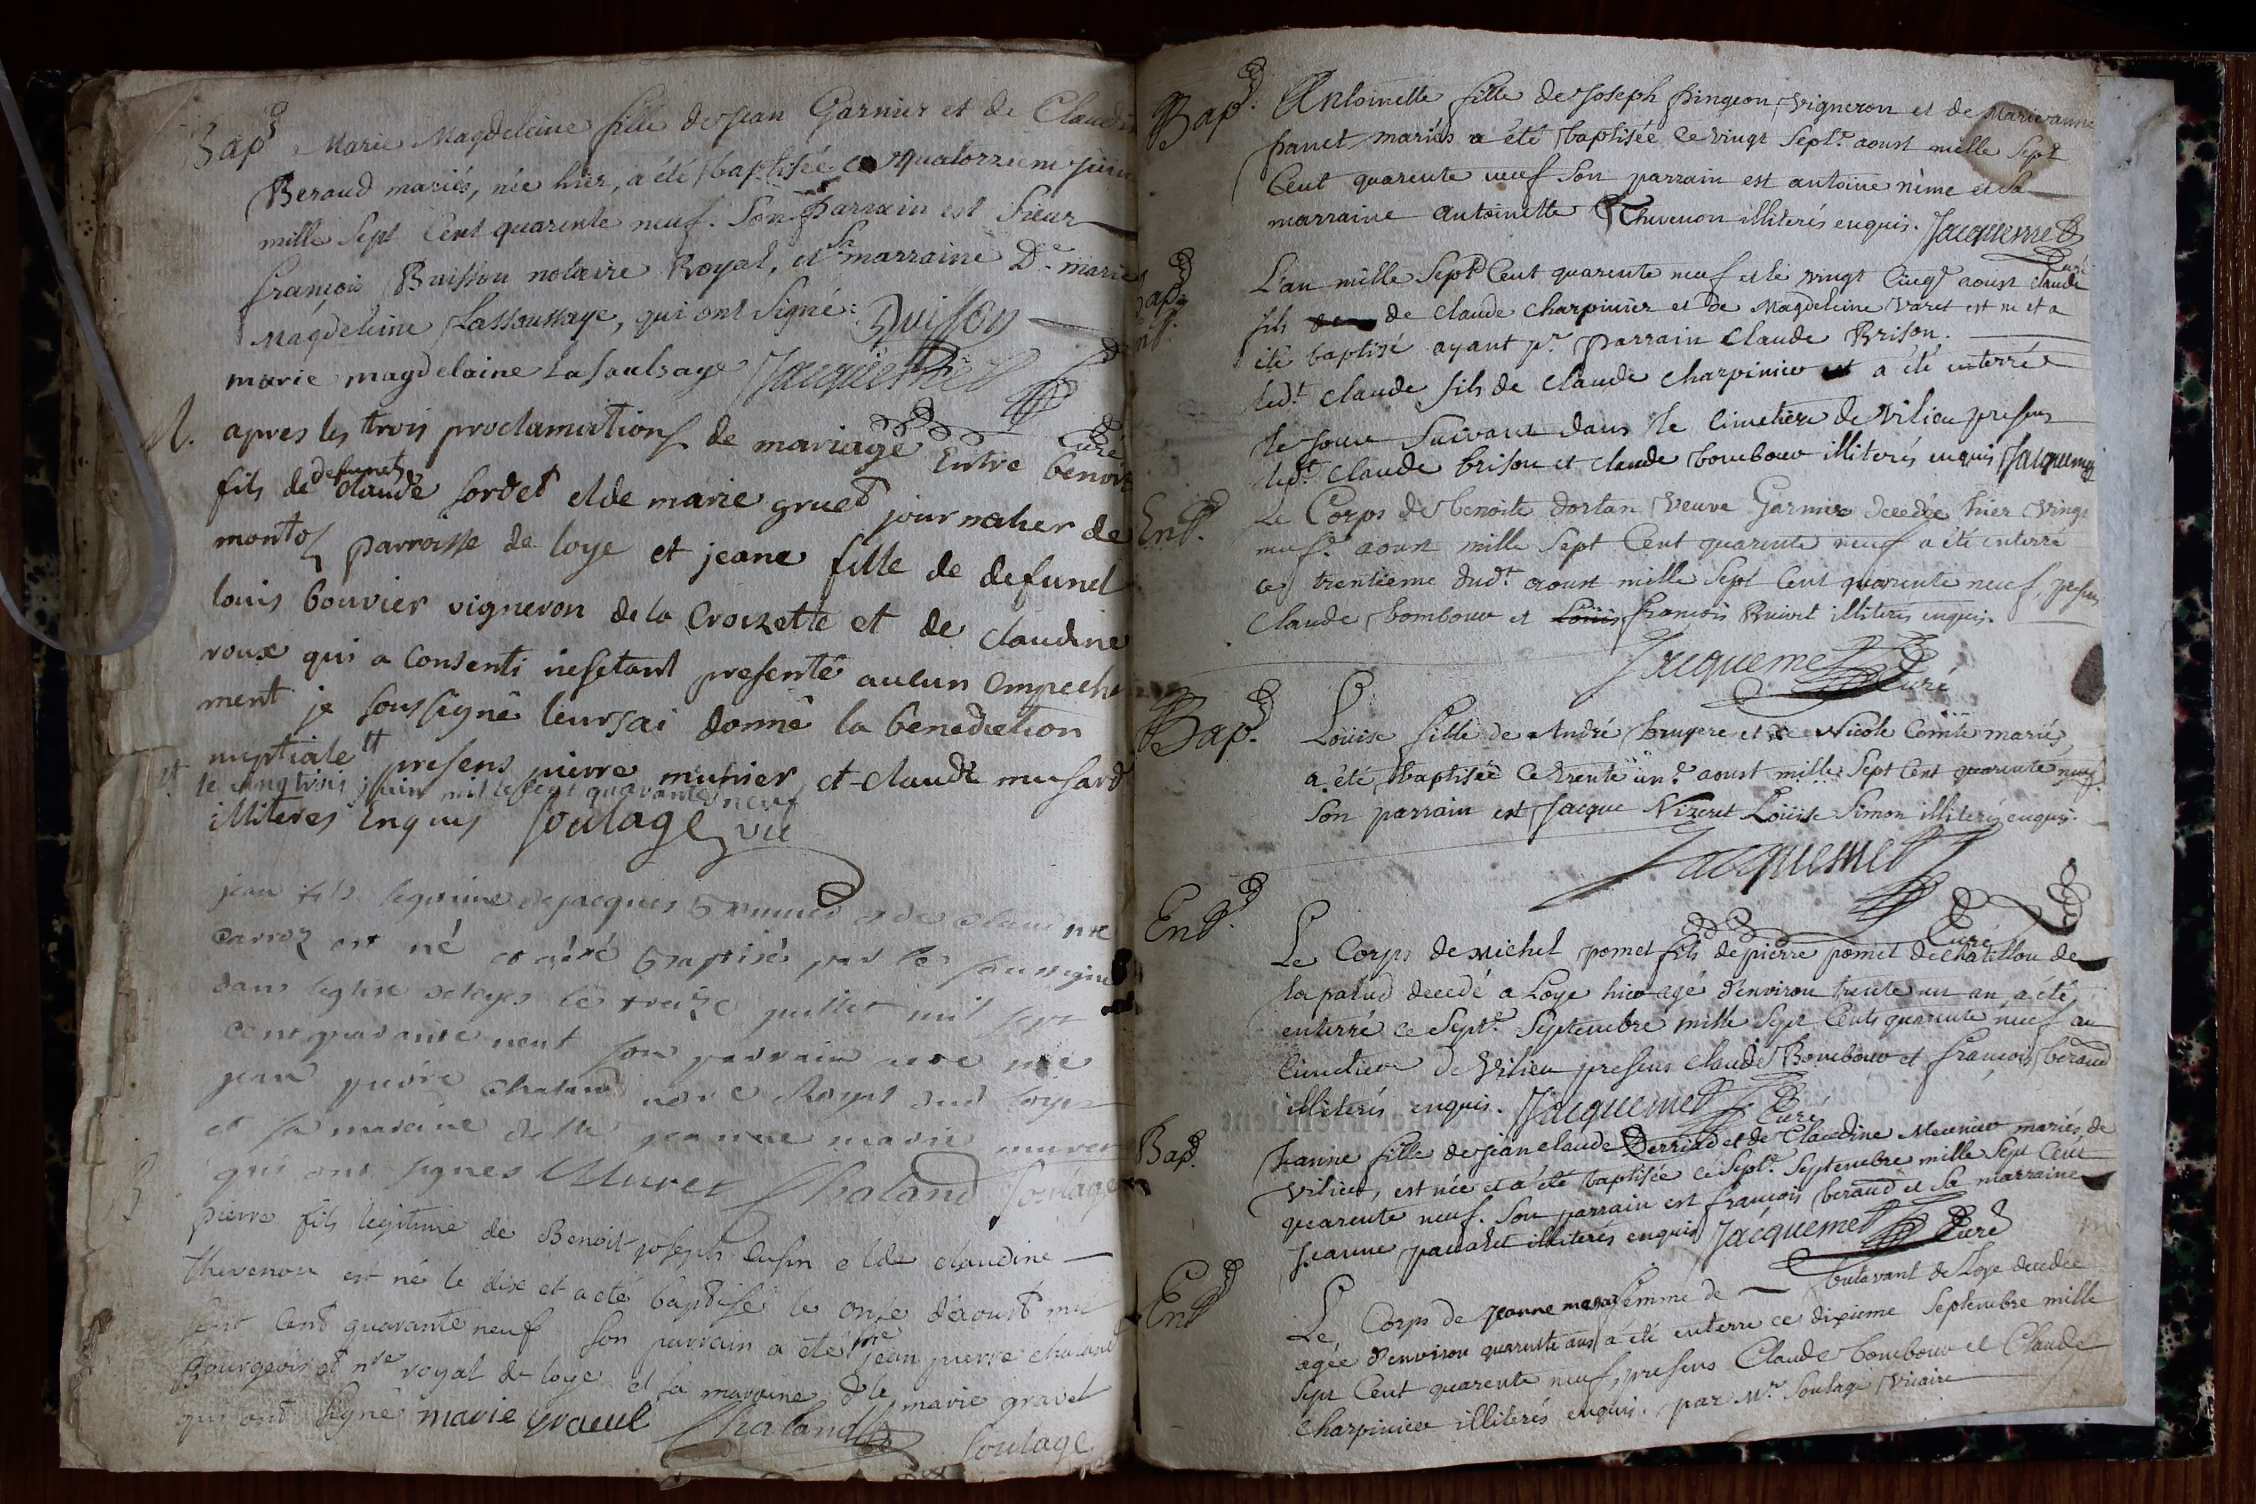 Bapt. Marie Magdeleine fille de Jean Garnier et de Claudi
Beraud mariés, née hier, a été baptisée ce quatorzieme juin
mille sept cent quarente neuf. Son parrain est sieur
françois Buisson notaire Royal, et sa marraine De. marie
Magdeleine Lassoussaye, qui ont signé: Buisson
marie magdelaine Lasaulsaye Jacquemet
curé
M. apres les trois proclamations de mariage Entre benoit
fils de defunct claude sordet et de marie grued journalier de
montos parroisse de loye et jeane fille de defunct
louis bouvier vigneron de la Croizette et de claudine
roux qui a consenti nesetant presenté aucun empeche
ment je soussigné leurs ai donné la benediction
nuptiale tt presens pierre munier et claude musard
tt le vingtrois juin mil sept cent quarante neuf
illiteres enquis Soulage vic
jean fils legitime de jacques et de claudine
Carroz est né et a été baptisé par le soussigné
dans leglise de loyes le treize juillet mil sept
cent quarante neuf son parrain a eté me
jean pierre Chaland nore Royal dud loyes
et sa maraine delle jeanne marie muret
qui ont signes Muret Chaland Soulage
B pierre fils legitime de Benoit joseph et de claudine
thevenon est né le dix et a eté baptisé le onze d'aoust mil
sept cent quarante neuf son parrain a eté me jean pierre chaland
Bourgeois et nre royal de loye et sa maraine dlle marie gravet
qui ont signé marie Chaland Soulage
Bapt. Antoinette fille de Joseph Pingeon, Vigneron et de Marie anne
panet mariés a été baptisée ce vingt sept. aoust mille sept
Cent quarente neuf Son parrain est antoine nême et sa
marraine antoinette Thevenon illiterés enquis. Jacquemet
curé
Bapt. Ent. L'an mille Sept Cent quarente neuf et le vingt Cinq aoust claude
fils de claude charpinier et de Magdeleine Varet est né et a
été baptisé ayant pr. parrain Claude Brison.
led.t claude fils de claude charpinier a été enterré
le jour suivant dans le cimetiere de Vilieu presens
led.t claude brison et claude bombour illiterés enquis Jacquemet
Ent. Le Corps de benoite dortan Veuve Garnier decedée hier vingt
neuf. aoust mille sept Cent quarente neuf a été enterré
ce trentieme dud.t aoust mille sept Cent quarente neuf, presens
Claude bombour et Loüis françois Ruivet illiterés enquis.
Jacquemet
curé
Bapt. Loüise fille de André bruyere et de Nicole Comte mariés
a été baptisée ce trente un. aoust mille sept Cent quarente neuf.
Son parrain est Jacque Vizeret Loüise Simon illiterés enquis.
Jacquemet
Curé
Ent. Le Corps de Michel pomet fils de pierre pomet de chatillon de
la palud decedé a Loye hier agé d'environ trente un an, a été
enterré ce Sept.e Septembre mille Sept Cents quarente neuf au
Cimetiere de Vilieu presens claude Bombour et françois beraud
illiterés enquis. Jacquemet
Curé
Bapt. Jeanne fille de Jean claude Derriad et de Claudine Meunier mariés, de
Vilieu, est née et a été baptisée ce Sept.e Septembre mille Sept Cent
quarente neuf. Son parrain est françois beraud et sa marraine
Jeanne illiterés enquis Jacquemet Curé
Ent. Le Corps de jeanne femme de butavant de Loye decedée
agée d'environ quarente ans a été enterré ce dixieme Septembre mille
Sept Cent quarente neuf, presens Claude bombour et Claude
Charpinier illiterés enquis. par Mr. Soulage Vicaire